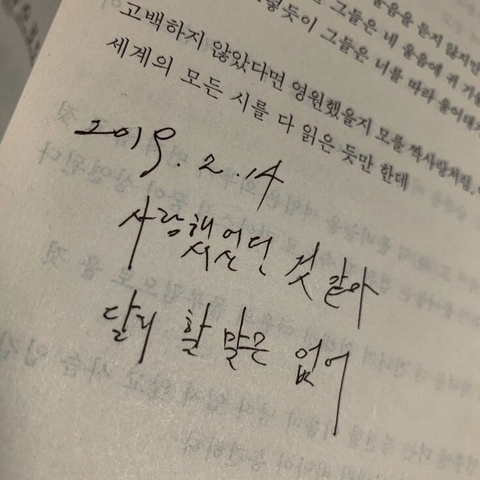 그들은 내 울음에 귀 기울
그렇듯이 그들은 너를 따라 울어대지
고백하지 않았다면 영원했을지 모를 짝사랑처럼,
세계의 모든 시를 다 읽은 듯만 한데
2019. 2. 14
사랑했었던 것 같아
달리 할 말은 없어